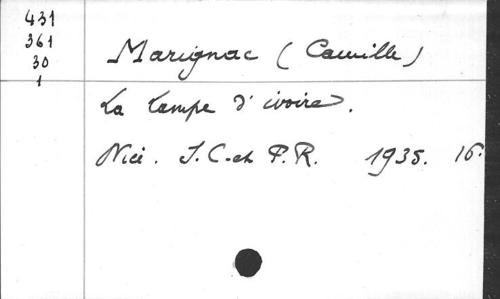 431
361
30
1
Marignac (Camille)
La lampe d'ivoire.
Nice. I.C. et P.R. 1935. 16.